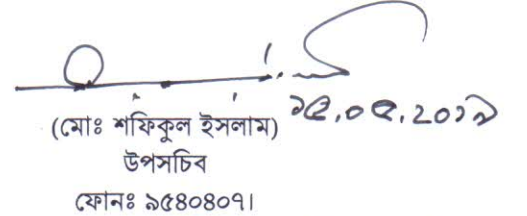 ১৫.০৫.২০১৯
(মোঃ শফিকুল ইসলাম)
উপসচিব
ফোনঃ ৯৫৪০৪০৭।